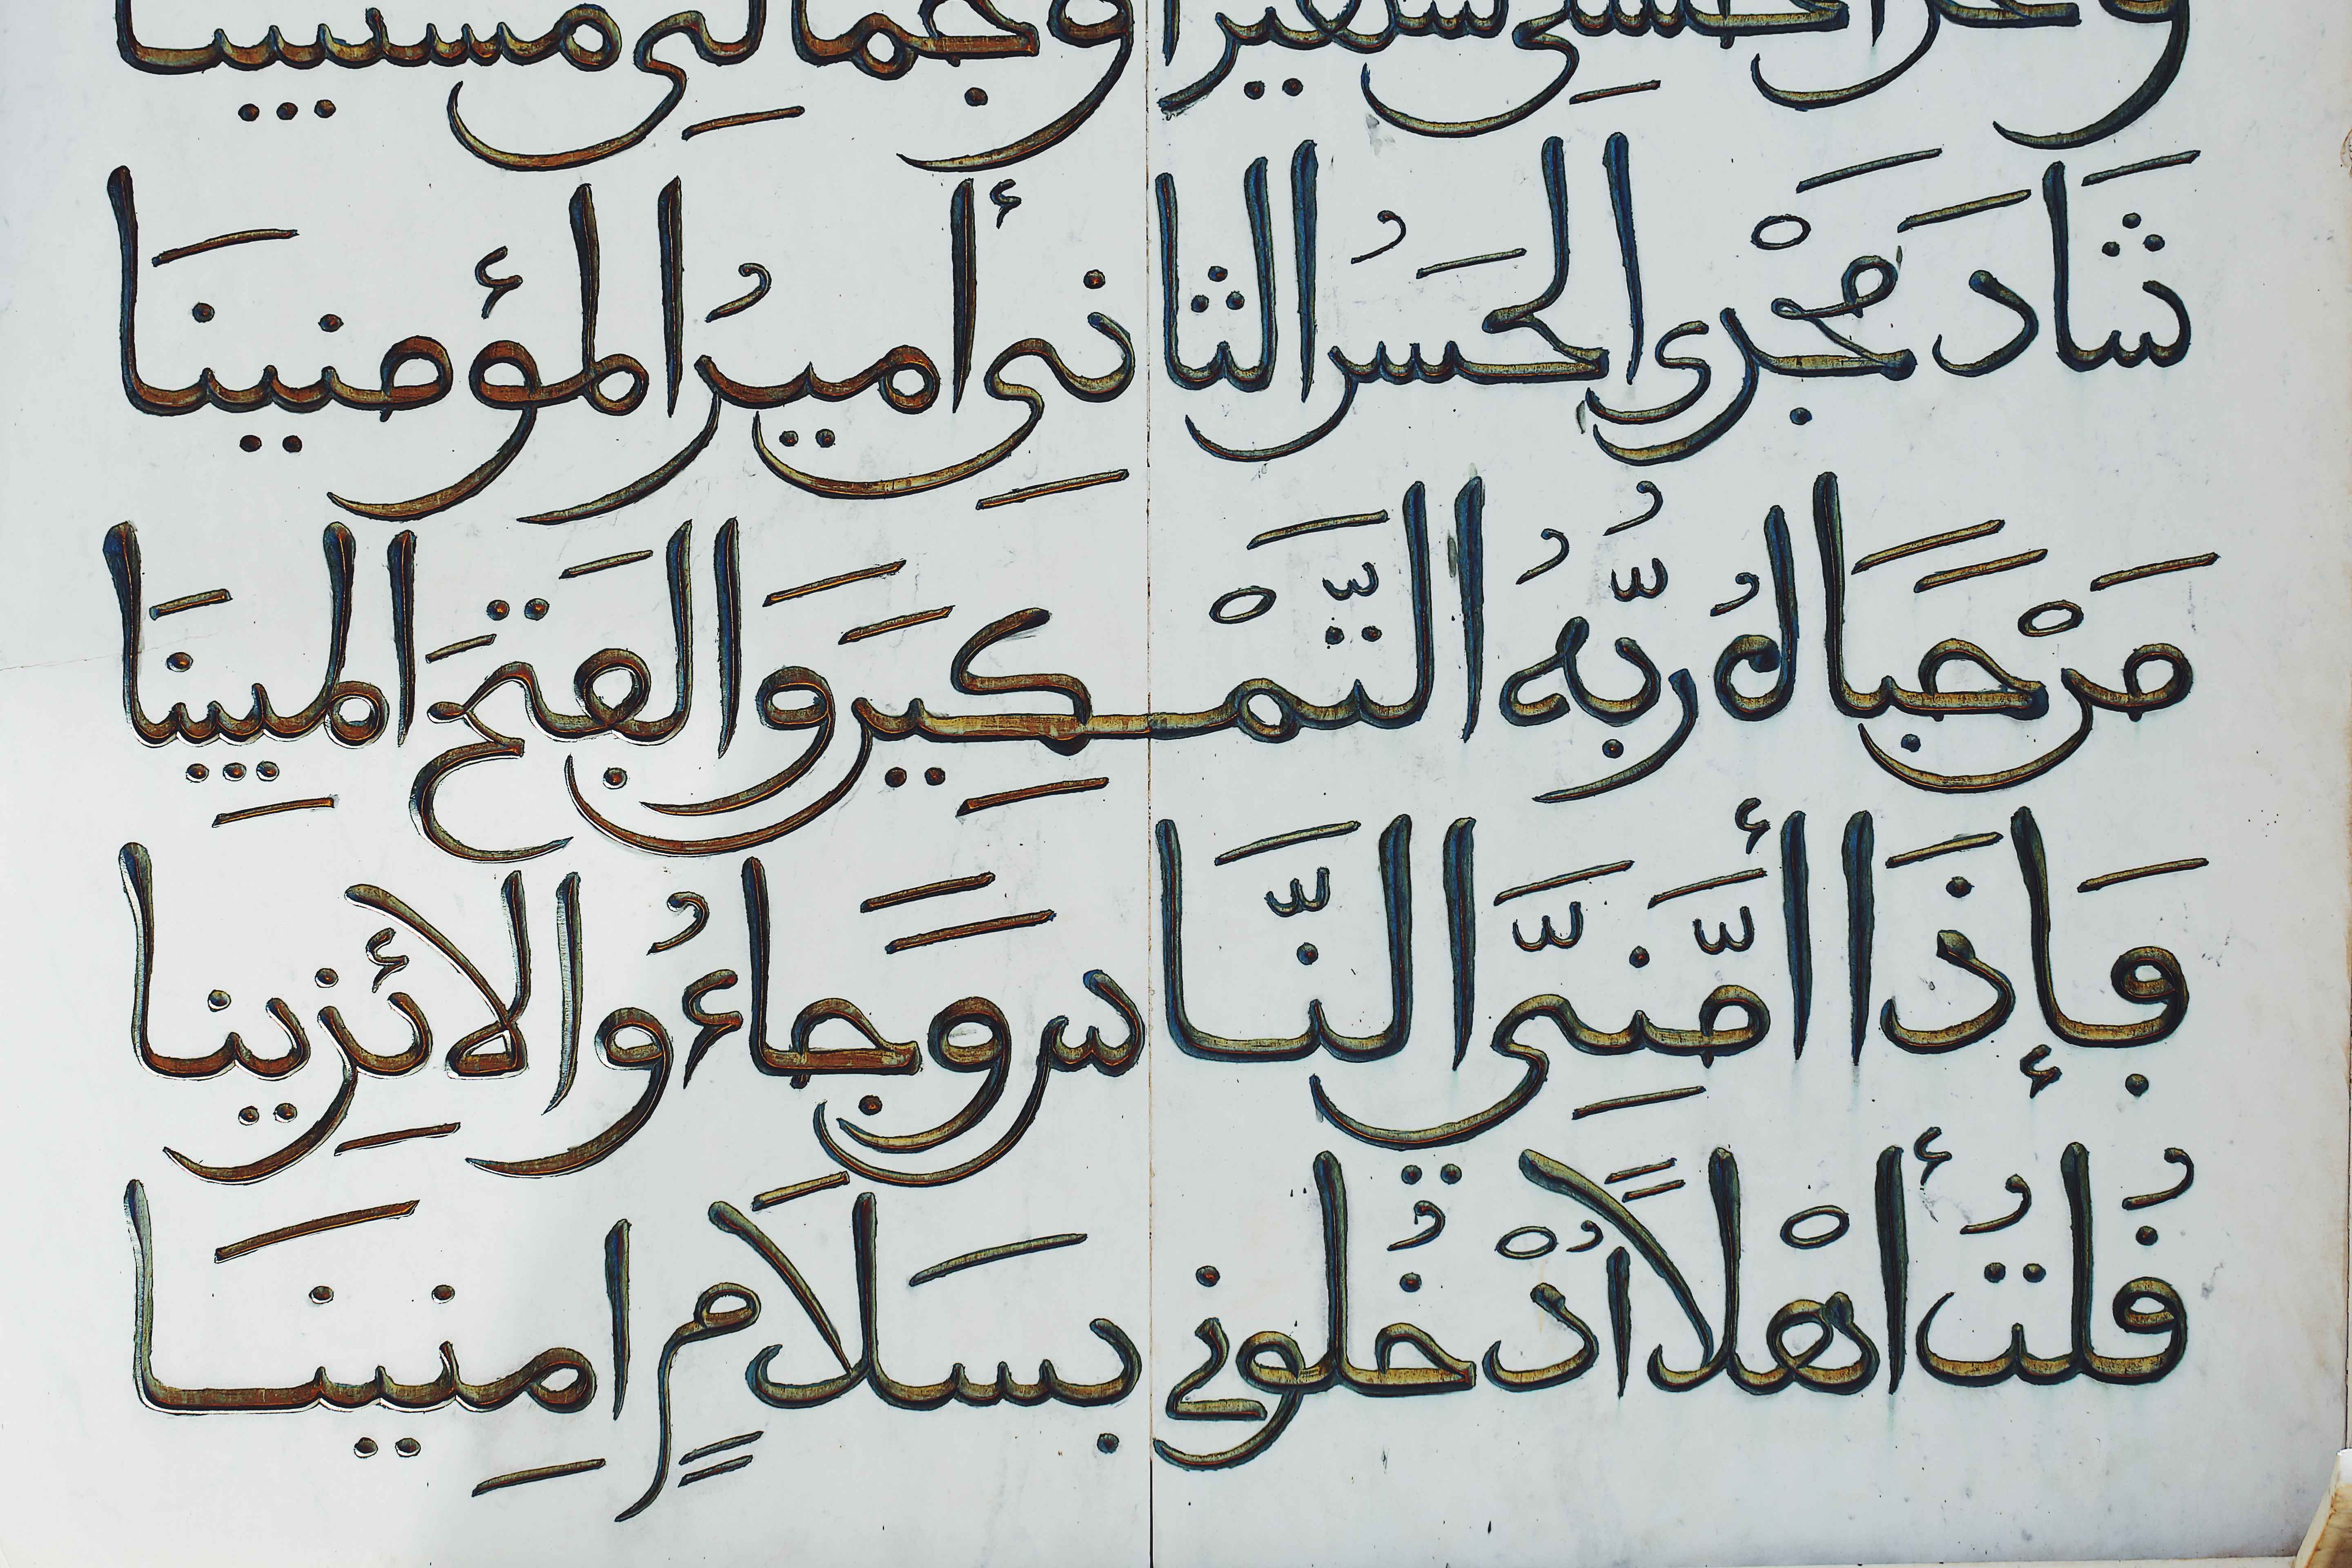 وجمالي مستبينا
شَادَ مَجْرى الحَسَنُ الثا نِي أميرُ المؤمنينَا
مَرْحَبًا لهُ رَبُّهُ التَّمْكِينَ وَالفَتْحَ المبِينَا
فَإذَا أمَّنِيَ النَّا س وَجَاءُوا لائِزينا
قُلتُ أهْلاً ادْخُلُوني بسَلَامٍ امِنينَا